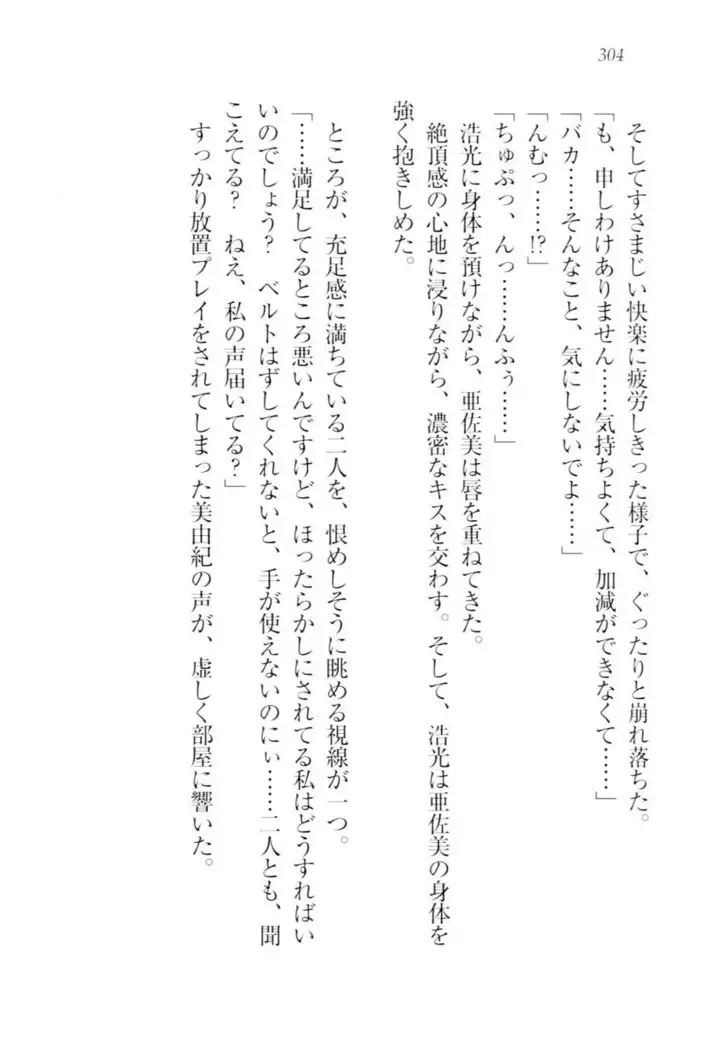 304
そしてすさまじい快楽に疲労しきった様子で、ぐったりと崩れ落ちた。
「も、申しわけありません……気持ちよくて、加減ができなくて……」
「バカ……そんなこと、気にしないでよ……」
「んむっ……!?」
「ちゅぷっ、んっ……んふぅ……」
浩光に身体を預けながら、亜佐美は唇を重ねてきた。
絶頂感の心地に浸りながら、濃密なキスを交わす。そして、浩光は亜佐美の身体を
強く抱きしめた。
ところが、充足感に満ちている二人を、恨めしそうに眺める視線が一つ。
「……満足してるところ悪いんですけど、ほったらかしにされてる私はどうすればい
いのでしょう？　ベルトはずしてくれないと、手が使えないのにぃ……二人とも、聞
こえてる？　ねえ、私の声届いてる？」
すっかり放置プレイをされてしまった美由紀の声が、虚しく部屋に響いた。